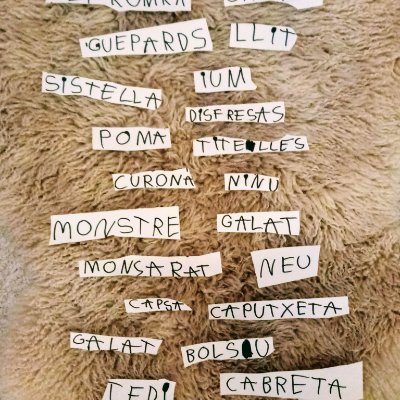 GUEPARDS LLIT
SISTELLA IUM
DISFRESAS
POMA TITELLES
CURONA NINU
MONSTRE GALAT
MONSARAT NEU
CAPSA CAPUTXETA
GALAT BOLSIU
TEDI CABRETA